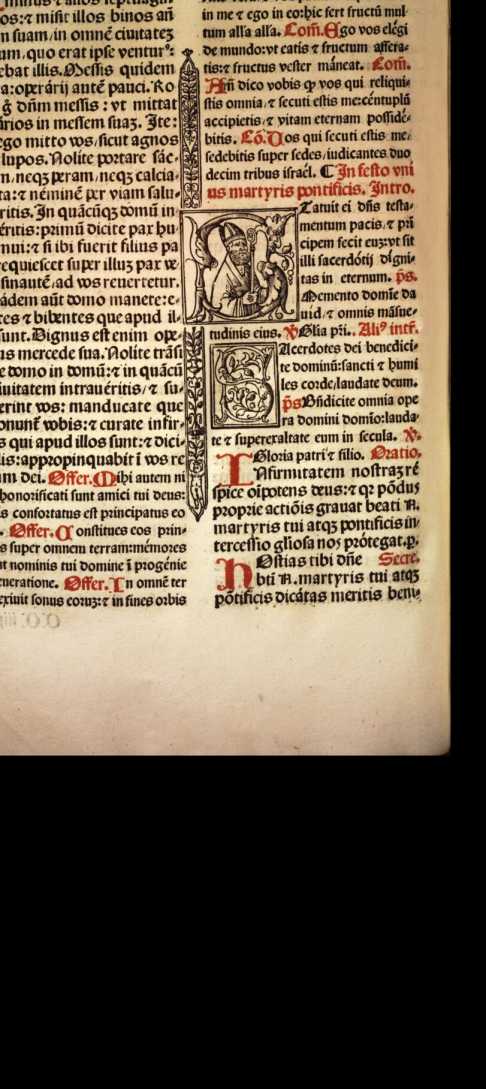 os: ⁊ misit illos binos añ
m suam, in omnē ciuitateꝫ
um, quo erat ipse venturꝰ:
ebat illis. Messis quidem
a: operárij autē pauci. Ro
g̃ dñm messis: vt mittat
ários in messem suaꝫ. Ite:
ego mitto vos, sicut agnos
lupos. Nolite portare sác-
m, neqꝫ peram, neqꝫ calcia-
ta: ⁊ néminē per viam salu-
ritis. In quācūqꝫ domū in
éritis: primū dicite pax hu
mui: ⁊ si ibi fuerit filius pa
requiescet super illuꝫ pax ve-
sinauté, ad vos reuertetur.
ādem aūt domo manete: e-
tes ⁊ bibentes que apud il-
sunt. Dignus est enim ope-
us mercede sua. Nolite trāsi
e domo in domū: ⁊ in quācū
iuitatem intrauéritis, ⁊ su-
erint vos: manducate que
onunt̃ vobis: ⁊ curate infir-
s qui apud illos sunt: ⁊ dici-
lis: appropinquabit ī vos re
um dei. Offer. Mihi autem ni
honorificati sunt amici tui deus:
s confortatus est principatus eo
Offer. Constitues eos prin-
s super omnem terram: mémores
nt nominis tui domine ī progénie
eneratione. Offer. In omnē ter
exiuit sonus eoruꝫ: ⁊ in fines orbis
in me ⁊ ego in eo: hic fert fructū mul-
tum alľa alľa. Com̃. Ego vos elégi
de mundo: vt eatis ⁊ fructum affera-
tis: ⁊ fructus vester máneat. Com̃.
Amē dico vobis ꝙ vos qui reliqui-
stis omnia, ⁊ secuti estis me: céntuplū
accipietis, ⁊ vitam eternam possidé-
bitis. Cō. Vos qui secuti estis me,
sedebitis super sedes, iudicantes duo
decim tribus israél. ⸿ In festo vni
us martyris pontificis. Intro.
Statuit ei dñs testa-
mentum pacis, ⁊ prī
cipem fecit euꝫ: vt sit
illi sacerdótij dígni-
tas in eternum. p̃s.
Memento domīe da
uid, ⁊ omnis māsue-
tudinis eius. ℣ Glia p̃ri. Aliꝰ intř.
Sacerdotes dei benedíci-
te dominū: sancti ⁊ humi
les corde, laudate deum.
p̃s Bñdicite omnia ope
ra domini domīo: lauda-
te ⁊ superexaltate eum in secula. ℣.
Gloria patri ⁊ filio. Oratio.
Infirmitatem nostraꝫ ré
spice oīpotens deus: ⁊ qꝛ pōdus
proprie actiōis grauat beati N.
martyris tui atqꝫ pontificis in-
tercessio gľiosa nos prótegat. p.
Hostias tibi dñe Secre.
btī N. martyris tui atqꝫ
pōtificis dicátas meritis beni,